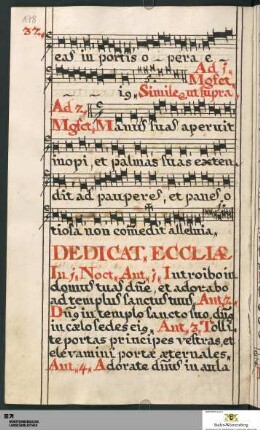 118
32.
eas in portis o - pera e -
Ad j.
Mgfct.
i9. Simile ut supra.
Ad 2.
Mgfct. Manus suas aperuit
inopi, et palmas suas exten
dit ad pauperes, et panes o
tiosa non comedit alleluia.
DEDICAT. ECCLIÆ
In j. Noct. Ant. j. Introibo in
domum tuam dñe, et adorabo
ad templum sanctum tuum. Ant. 2.
Dñ9 in templo sancto suo, dñ9
in cælo sedes ei9. Ant. 3. Tolli
te portas principes vestras, et
elevamini portæ æternales.
Ant. 4. Adorate dñum in aula
Baden-Württemberg